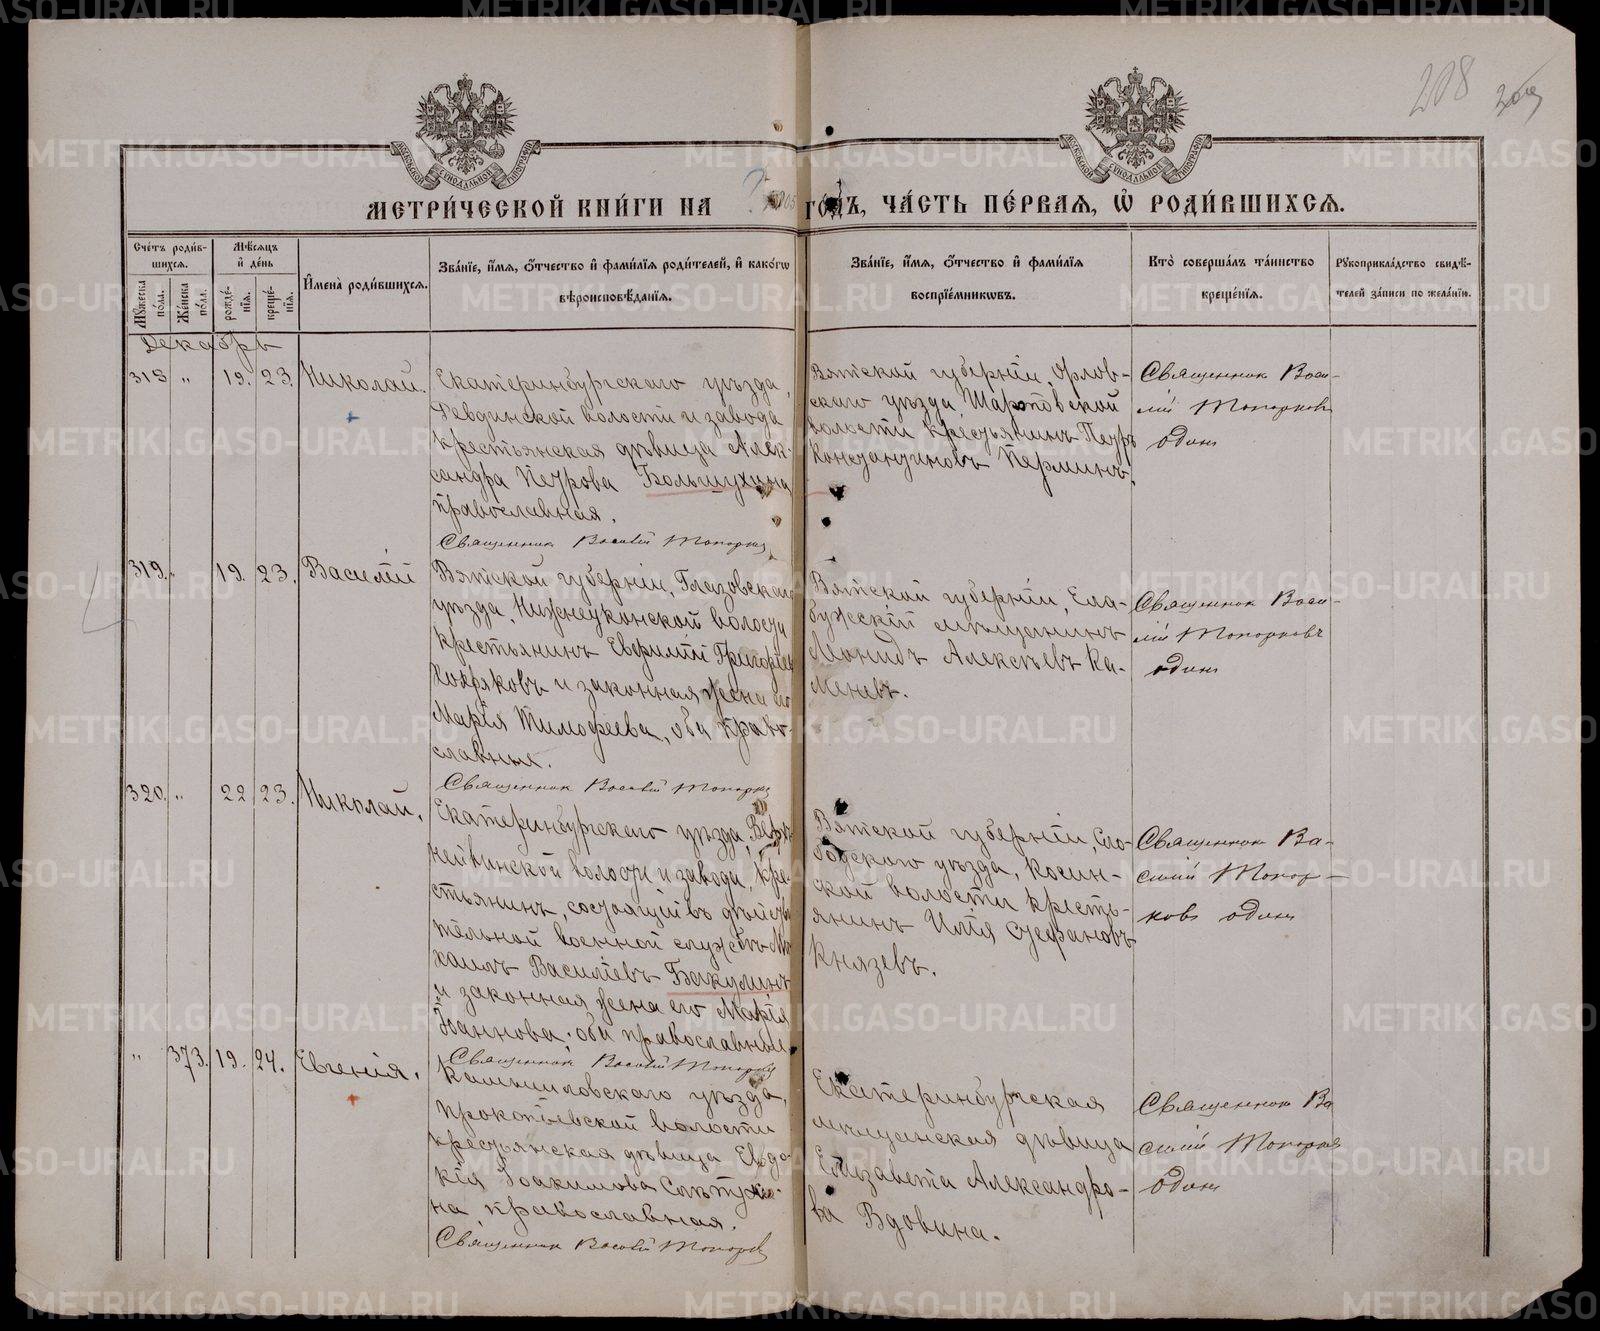 208
МЕТРИ́ЧЕСКОЙ КНИ́ГИ НА 1905 ГО́ДЪ, ЧА́СТЬ ПЕ́РВАЯ, Ѡ҆ РОДИ́ВШИХСЯ.
Сче́тъ роди́в-
шихся.
Мѣ́сяцъ
и҆ де́нь
Му́жеска
по́ла.
Же́нска
по́ла.
рожде́-
нїя.
креще́-
нїя.
И҆мена̀ роди́вшихся.
Зва́нїе, и҆́мя, ѻ҆́тчество и҆ фами́лїя роди́телей, и҆ како́гѡ
вѣроисповѣ́данїя.
Зва́нїе, и҆́мя, ѻ҆́тчество и҆ фами́лїя
воспрїе́мникѡвъ.
Кто̀ соверша́лъ та́инство
креще́нїя.
Рꙋкоприкла́дство свидѣ́-
телей за́писи по жела́нїю.
Декабрь
318 „ 19. 23. Николай.
Екатеринбургскаго уѣзда,
Ревдинской волости и завода
крестьянская дѣвица Алек-
сандра Петрова Большухина
православная.
Священник Василій Топорков
Вятской губерніи, Орлов-
скаго уѣзда, Шараповской
волости крестьянинъ Петръ
Константиновъ Перминъ.
Священник Васи-
лій Топорков
один
319. „ 19. 23. Василій
Вятской губерніи, Глазовскаго
уѣзда, Нижнеуконской волости
крестьянинъ Евфимій Григорьевъ
и законная жена его
Марія Тимофеева, оба право-
славные.
Священник Василій Топорков
Вятской губерніи, Ела-
бужскій мѣщанинъ
Леонидъ Алексѣевъ Ка-
меневъ.
Священник Васи-
лій Топорковъ
один
320. „ 22 23. Николай.
Екатеринбургскаго уѣзда, Верх-
нейвинской волости и завода, кре-
стьянинъ, состоящій въ дѣйстви-
тельной военной службѣ Ми-
хаилъ Васильевъ Бакулинъ
и законная жена его Марія
Іоаннова, оба православные.
Священник Василій Топорков
Вятской губерніи, Сло-
бодскаго уѣзда, Косин-
ской волости кресть-
янинъ Илія Стефановъ
Князевъ.
Священник Ва-
силій Топор-
ков один
„ 373. 19. 24. Евгенія.
Камышловскаго уѣзда,
Прокопьевской волости
крестьянская дѣвица Евдо-
кія Іоакимова
на православная.
Священник Василій Топорков
Екатеринбургская
мѣщанская дѣвица
Елизавета Александро-
ва Вдовина.
Священник Ва
силій Топорков
один
METRIKI.GASO-URAL.RU